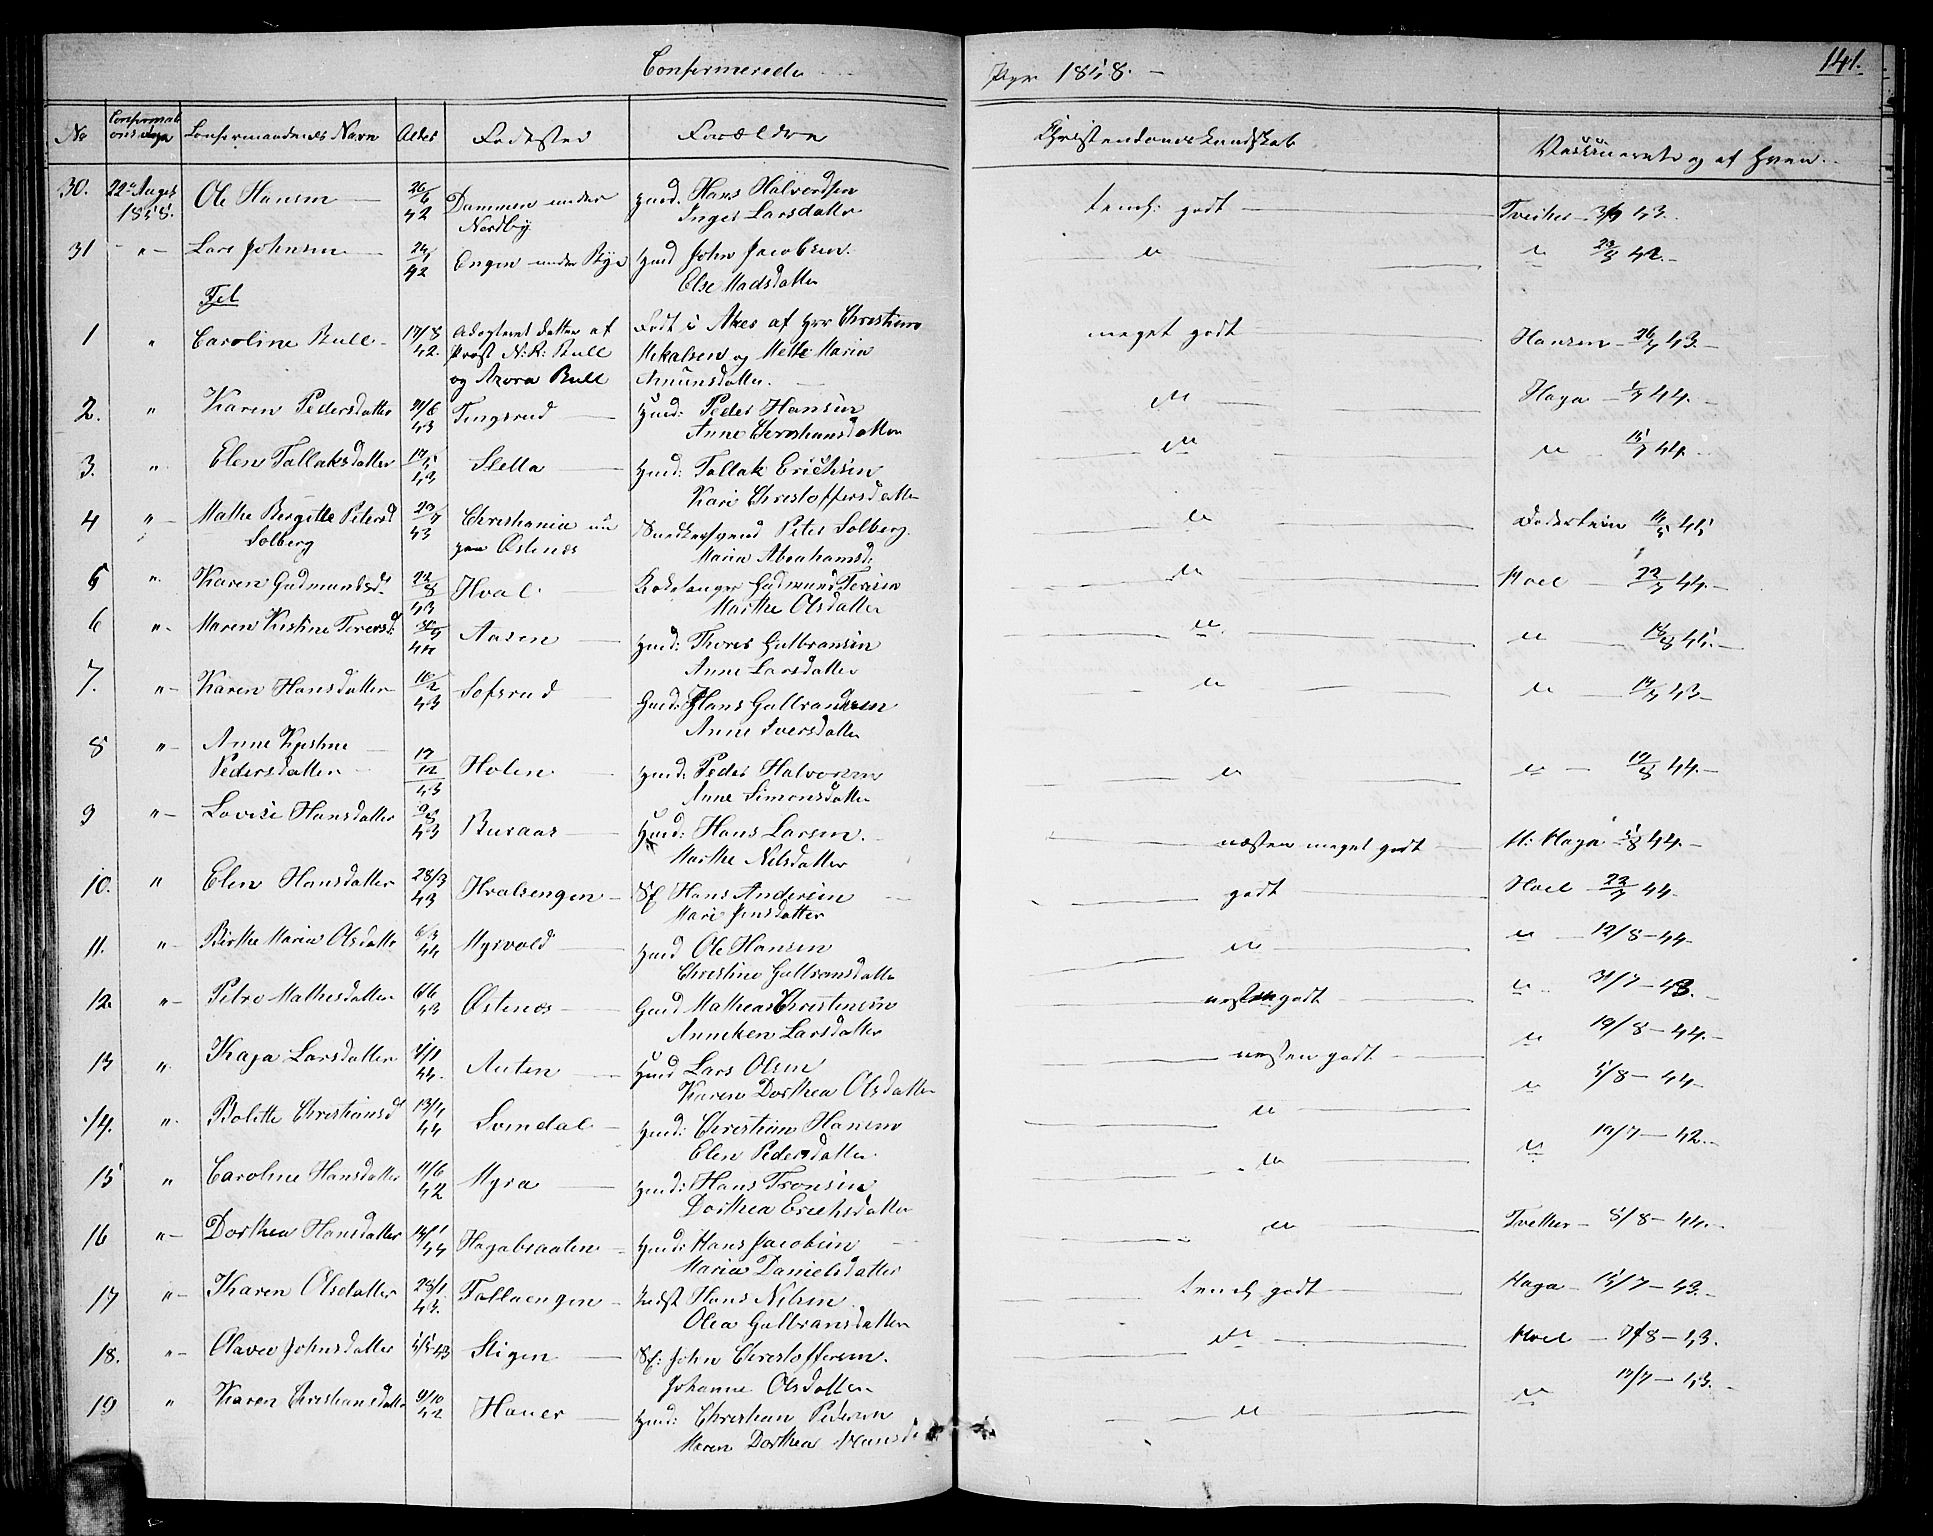 Confirmerede
Aar 1858.
141.
No
Confirmationsdage
Confirmandernes Navn
Alder
Fødested
Forældre
Christendomskundskab
Vaccinerede og af hvem.
30. 22de August 1858. Ole Hansen 26/6 42 Dammen under Nordby Huusm. Hans Halvordsen Inger Larsdatter temel. godt Tveiter 3/7 43.
31 " Lars Johnsen 24/1 42 Engen under Bye Huusm John Jacobsen. Else Madsdatter " " 23/8 42.
1 " Caroline Bull 17/8 42. Adopteret datter af Provst N: R: Bull og Azora Bull Født i Aker af Christian Mikalsen og Mette Maria Amunsdatter. meget godt Hansen 26/7 43.
2. " Karen Pedersdatter 21/6 43 Tingsrud Huusm: Peder Hansen Anne Christiansdatter " Haga 44.
3. " Elen Tallaksdatter 43 Sletta Huusm: Tallak Erichsen Kari Christoffersdatter " " 15/7 44.
4 " Mathe Bergitte Petersd Solberg 20/7 43 Christiania nu paa Østenes Snedkersvend Peter Solberg. Maria Abrahamsd: "
5 " Karen Gudmundsd. 22/8 43 Hval Gudmund Maithe Olsdatter " Hoel 22/7 44.
6 " Maren Kirstine Toresd: Aasen Huusm: Thores Gulbransen Anne Larsdatter " "
7. " Karen Hansdatter 16/2 43 Sofsrud Gaard: Hans Gulbrandsen Anne Iversdatter " " 43
8 " Anne Kjestine Pedersdatter 17/12 43 Holen Huusm: Peder Halvorsen Anne Simonsdatter " " 44.
9 " Lovise Hansdatter 9/8 43 Buraas Huusm: Hans Larsen. Marthe Nilsdatter næsten meget godt H: Haga 44.
10. " Elen Hansdatter 28/3 43 Hvalsengen Sf. Hans Andersen Mari Jensdatter godt Hoel 22/7 44.
11. " Birthe Maria Olsdatter 6/3 44 Myrvold Huusm Ole Hansen Christine Gulbransdatter " " 12/8 - 44
12. " Petra Mathesdatter 6/6 43 Østenes Gaard Matheas Christensen Anneken Larsdatter næsten godt " 31/7 - 43.
13 " Kaja Larsdatter 4/1 44. Auten Huusm Lars Olsen Karen Dorthea Olsdatter næsten godt " 19/8 - 44.
14. " Bolette Christiansd 13/1 44 Svendal Huusm: Christian Hansen Elen Pedersdatter. " " 5/8 - 44
15 " Caroline Hansdatter 11/6 42 Myra Huusm: Hans Tronsen Dorthea Erichsdatter " " 12/7 - 42.
16 " Dorthea Hansdatter 14/1 44 Hagabraaten Huusm: Hans Jacobsen Maria Danielsdatter " Tvetter 5/8 - 44.
17 " Karen Olsdatter 28/1 43. Tallaengen Hans Nilsen Olea Gulbransdatter temel. godt Haga 15/7 - 43.
18. " Olavea Johnsdatter 5/5 43 Stigen Sf: John Christoffersen. Johanne Olsdatter " Hoel 7/8 - 43.
19 " Karen Christiansdatter 9/10 42 Hauer Huusm: Christian Pedersen Maren Dorthea Hansd " " 12/7 - 43.